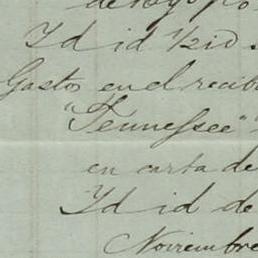 Id id 1/2 id.
Gastos en el recib
"Tennessee"
en carta de
Id id de
Noviembre